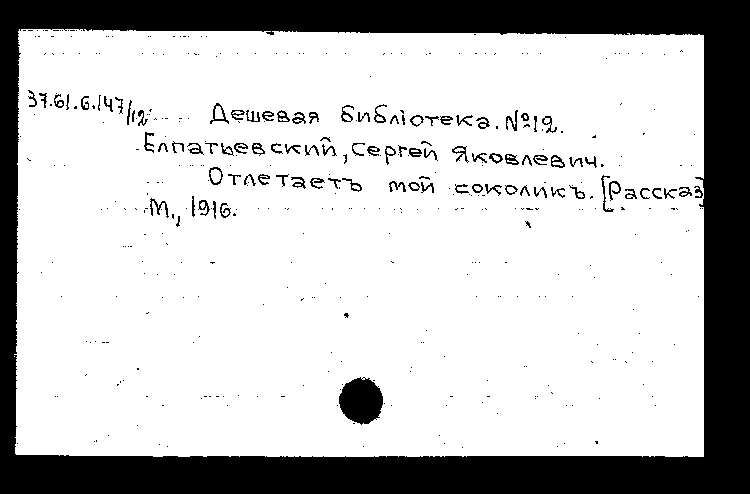 37.61.6.147/12 Дешевая библіотека. №12.
Елпатьевский, Сергей Яковлевич.
Отлетаетъ мой соколикъ. [Рассказ]
М., 1916.